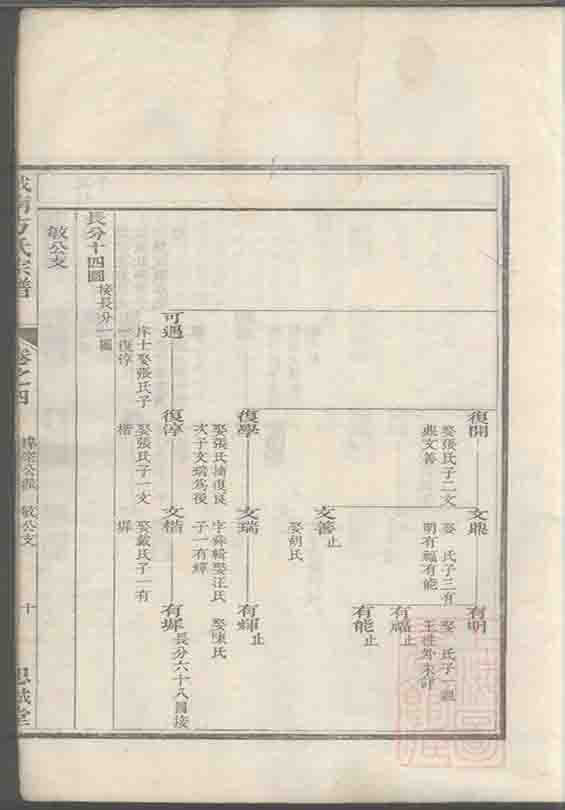 復開
娶張氏子二文
鼎文善
文鼎
娶 氏子三有
明有福有能
有明
娶 氏子一
有福止
有能止
文善止
娶胡氏
復學
娶張氏補復良
次子文瑞為後
文瑞
字舜輯娶汪氏
子一有輝
有輝止
娶陳氏
可過
庠士娶張氏子
一復淳
復淳
娶張氏子一文
楷
文楷
娶戴氏子一有
墀
有墀
長分六十八圖接
長分十四圖
接長分一圖
敏公支
方氏宗譜
卷之四
敏公支
十
思誠堂